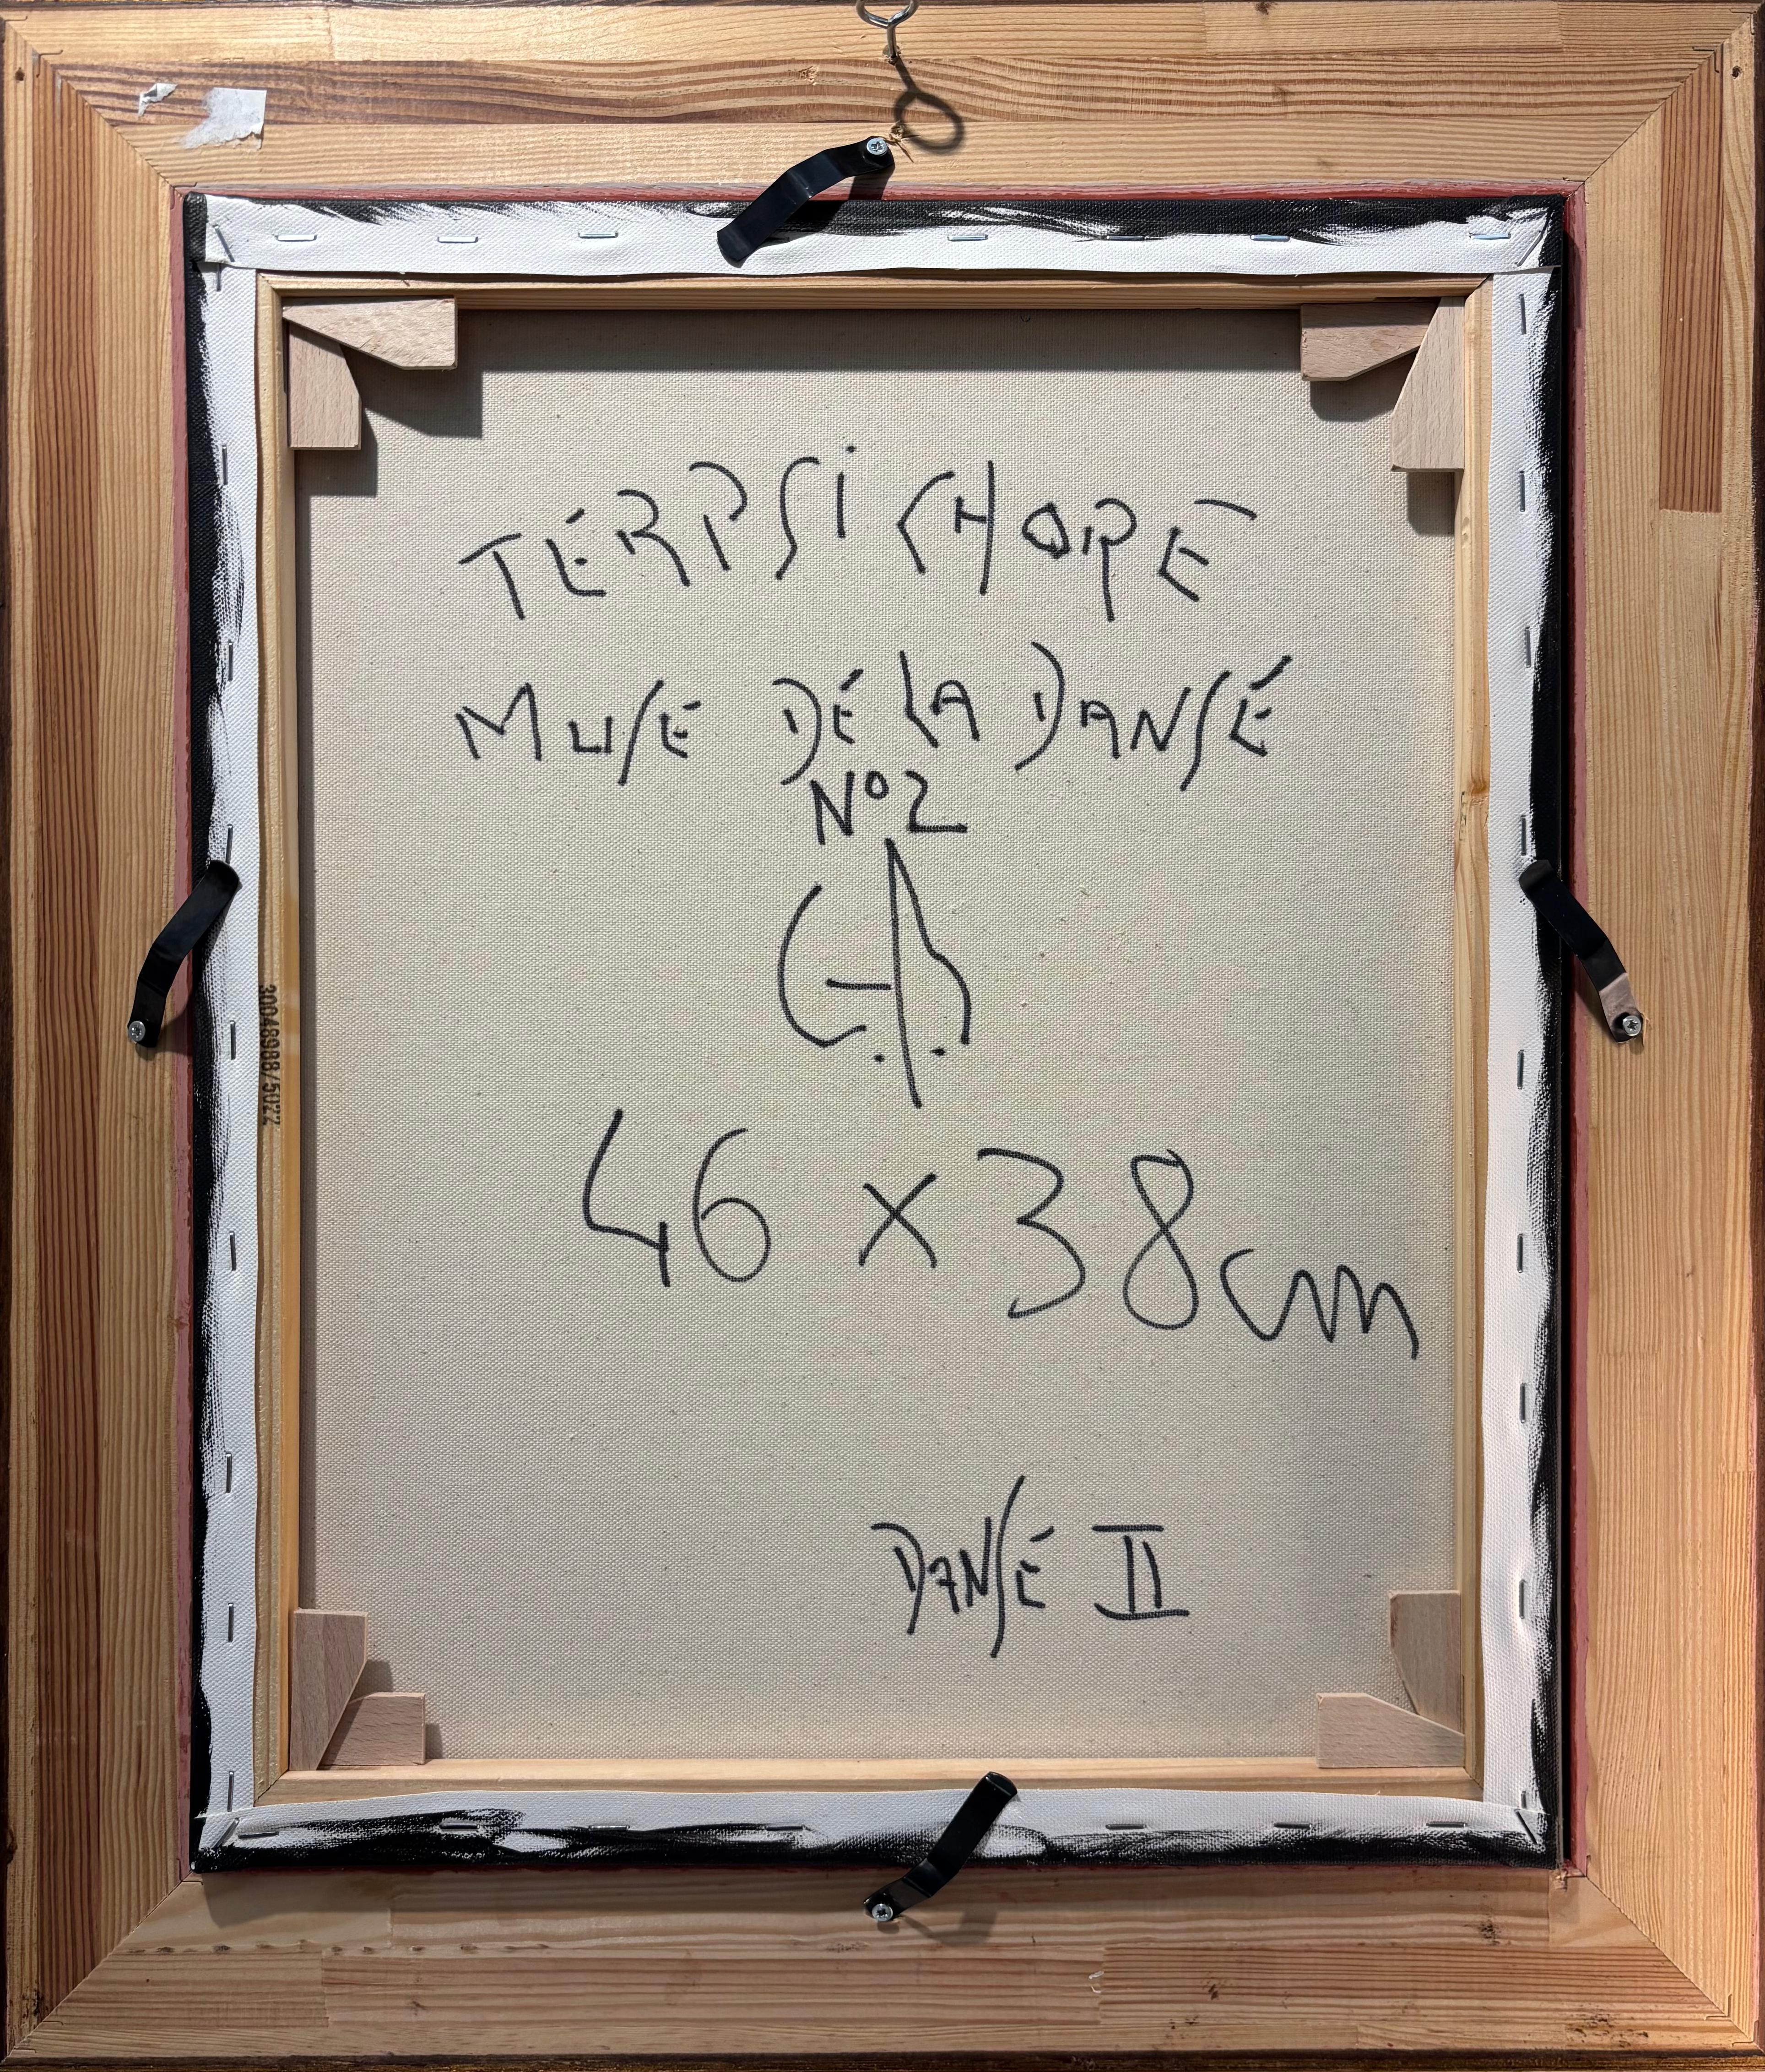 TERPSiCHORE
MUSE DE LA DANSE
N°2
46 x 38cm
DANSE II
30048988/5022